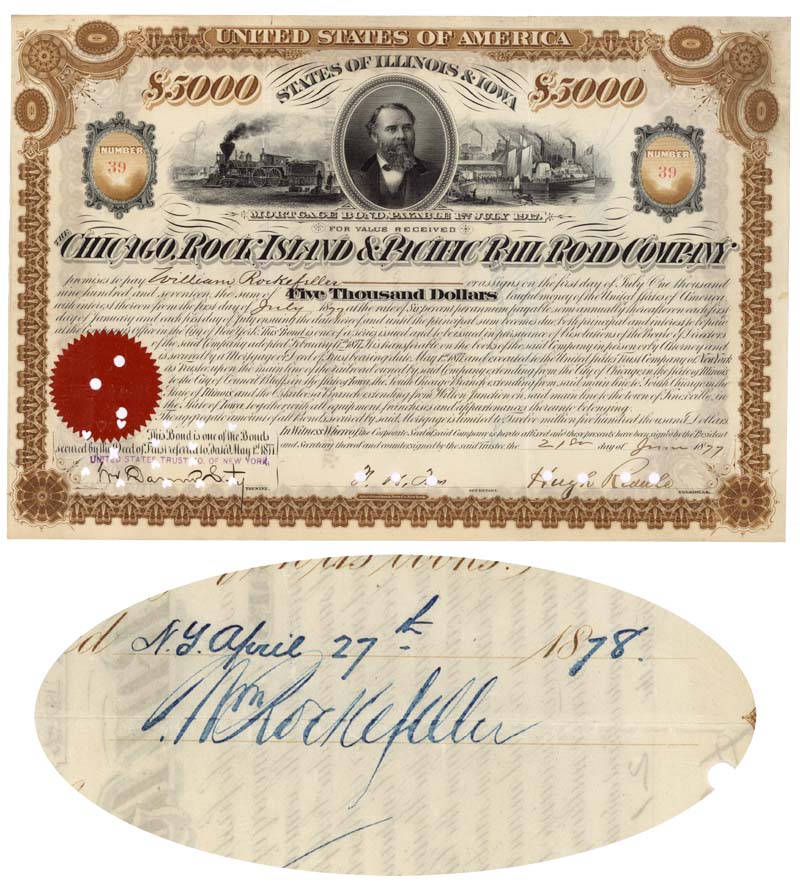 UNITED STATES OF AMERICA
$5000 STATES OF ILLINOIS & IOWA $5000
NUMBER NUMBER
39 39
MORTGAGE BOND, PAYABLE 1ST JULY 1917.
FOR VALUE RECEIVED
THE CHICAGO, ROCK ISLAND & PACIFIC RAIL ROAD COMPANY
promises to pay William Rockefeller or assigns on the first day of July One thousand
nine hundred and seventeen, the sum of Five Thousand Dollars lawful money of the United States of America,
with interest thereon from the first day of July 1877 at the rate of Six per cent per annum payable semi annually thereafter on each first
day of January and each first day of July ensuing the date hereof and until the principal sum becomes due, both principal and interest to be paid
at the Company's office in the City of New York. This Bond is one of a series issued and to be issued in pursuance of Resolutions of the Board of Directors
of the said Company adopted February 1877. It is transferable on the books of the said Company in person or by Attorney and
is secured by a Mortgage or Deed of Trust bearing date May 1st 1877 and executed to the United States Trust Company of New York
as Trustee upon the main line of the railroad owned by said Company extending from the City of Chicago in the State of Illinois
to the City of Council Bluffs in the State of Iowa, the South Chicago Branch extending from said main line to South Chicago in the
State of Illinois and the Oskaloosa Branch extending from Wilton Junction on said main line to the town of Knoxville, in
the State of Iowa, together with all equipment, franchises and appurtenances thereunto belonging.
the aggregate amount of all Bonds secured by said Mortgage is limited to Twelve million five hundred thousand Dollars
This Bond is one of the Bonds
secured by the Deed of Trust referred to, dated May 1st 1877.
UNITED STATES TRUST CO. OF NEW YORK,
TRUSTEE.
In Witness Whereof the Corporate Seal of said Company is hereto affixed and these presents have been signed by the President
and Secretary thereof and countersigned by the said Trustee, the 21st day of June 1877
F. H. Tows SECRETARY. Hugh Riddle PRESIDENT.
N.Y. April 27th 1878.
Wm Rockefeller